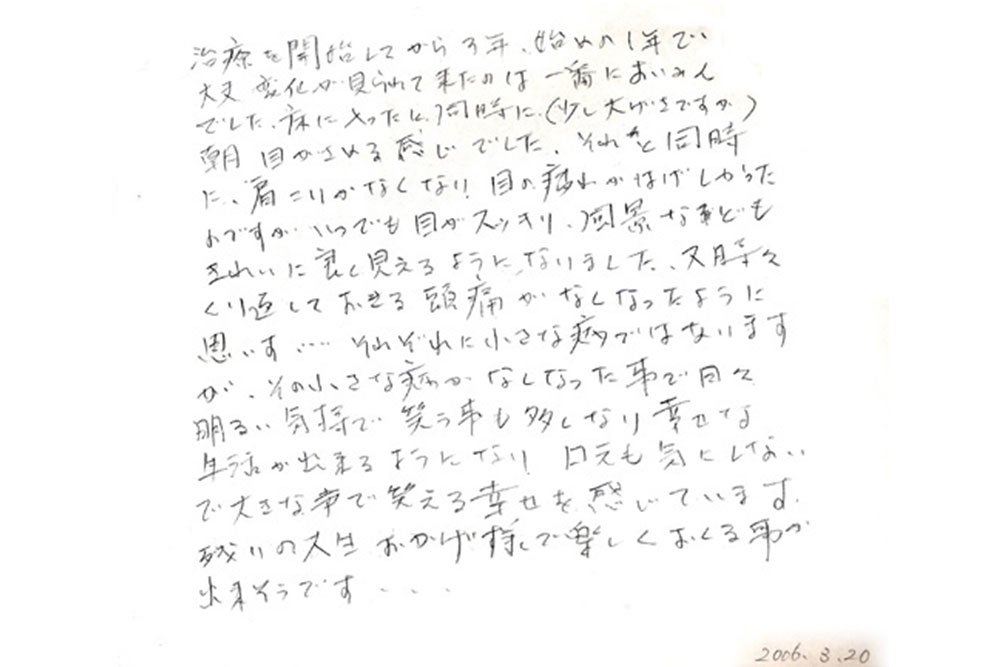 治療を開始してから3年、始めの1年で
大丈変化が見られて来たのは一番にすいみん
でした、床に入ったと同時に、(少し大げさですが)
朝目がさめる感じでした、それと同時
に、肩こりがなくなり!目の疲れがはげしかった
のですが、いつでも目がスッキリ、風景な事ども
きれいに良く見えるようになりました、又時々
くり返しておきる頭痛がなくなったように
思います‥‥それぞれに小さな病ではないます
が、その小さな病がなくなった事で日々
明るい気持で笑う事も多くなり幸せな
生活が出来るようになり!口元も気にしない
で大きな事で笑える幸せを感じています.
残りの人生おかげ様で楽しくおくる事が
出来そうです・・・
2006.3.20